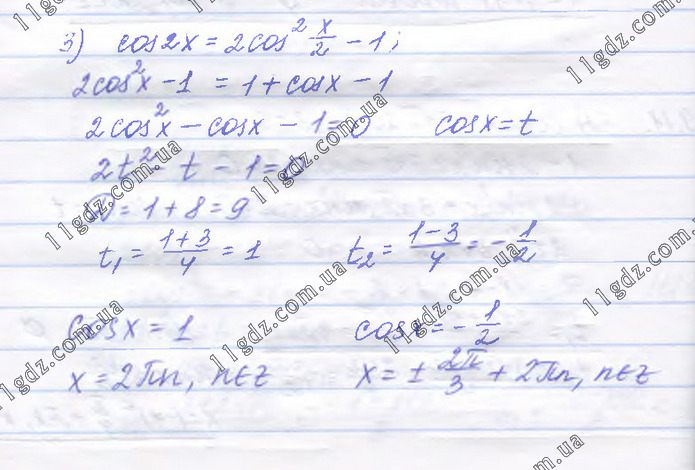 3) cos2x = 2cos² x/2 - 1;
2cos²x - 1 = 1 + cosx - 1
2cos²x - cosx - 1 = 0 cosx = t
2t² - t - 1 = 0
D = 1 + 8 = 9
t₁ = (1+3)/4 = 1 t₂ = (1-3)/4 = -1/2
cosx = 1 cosx = -1/2
x = 2πn, n∈z x = ± 2π/3 + 2πn, n∈z
11gdz.com.ua
11gdz.com.ua
11gdz.com.ua
11gdz.com.ua
11gdz.com.ua
11gdz.com.ua
11gdz.com.ua
11gdz.com.ua
11gdz.com.ua
11gdz.com.ua